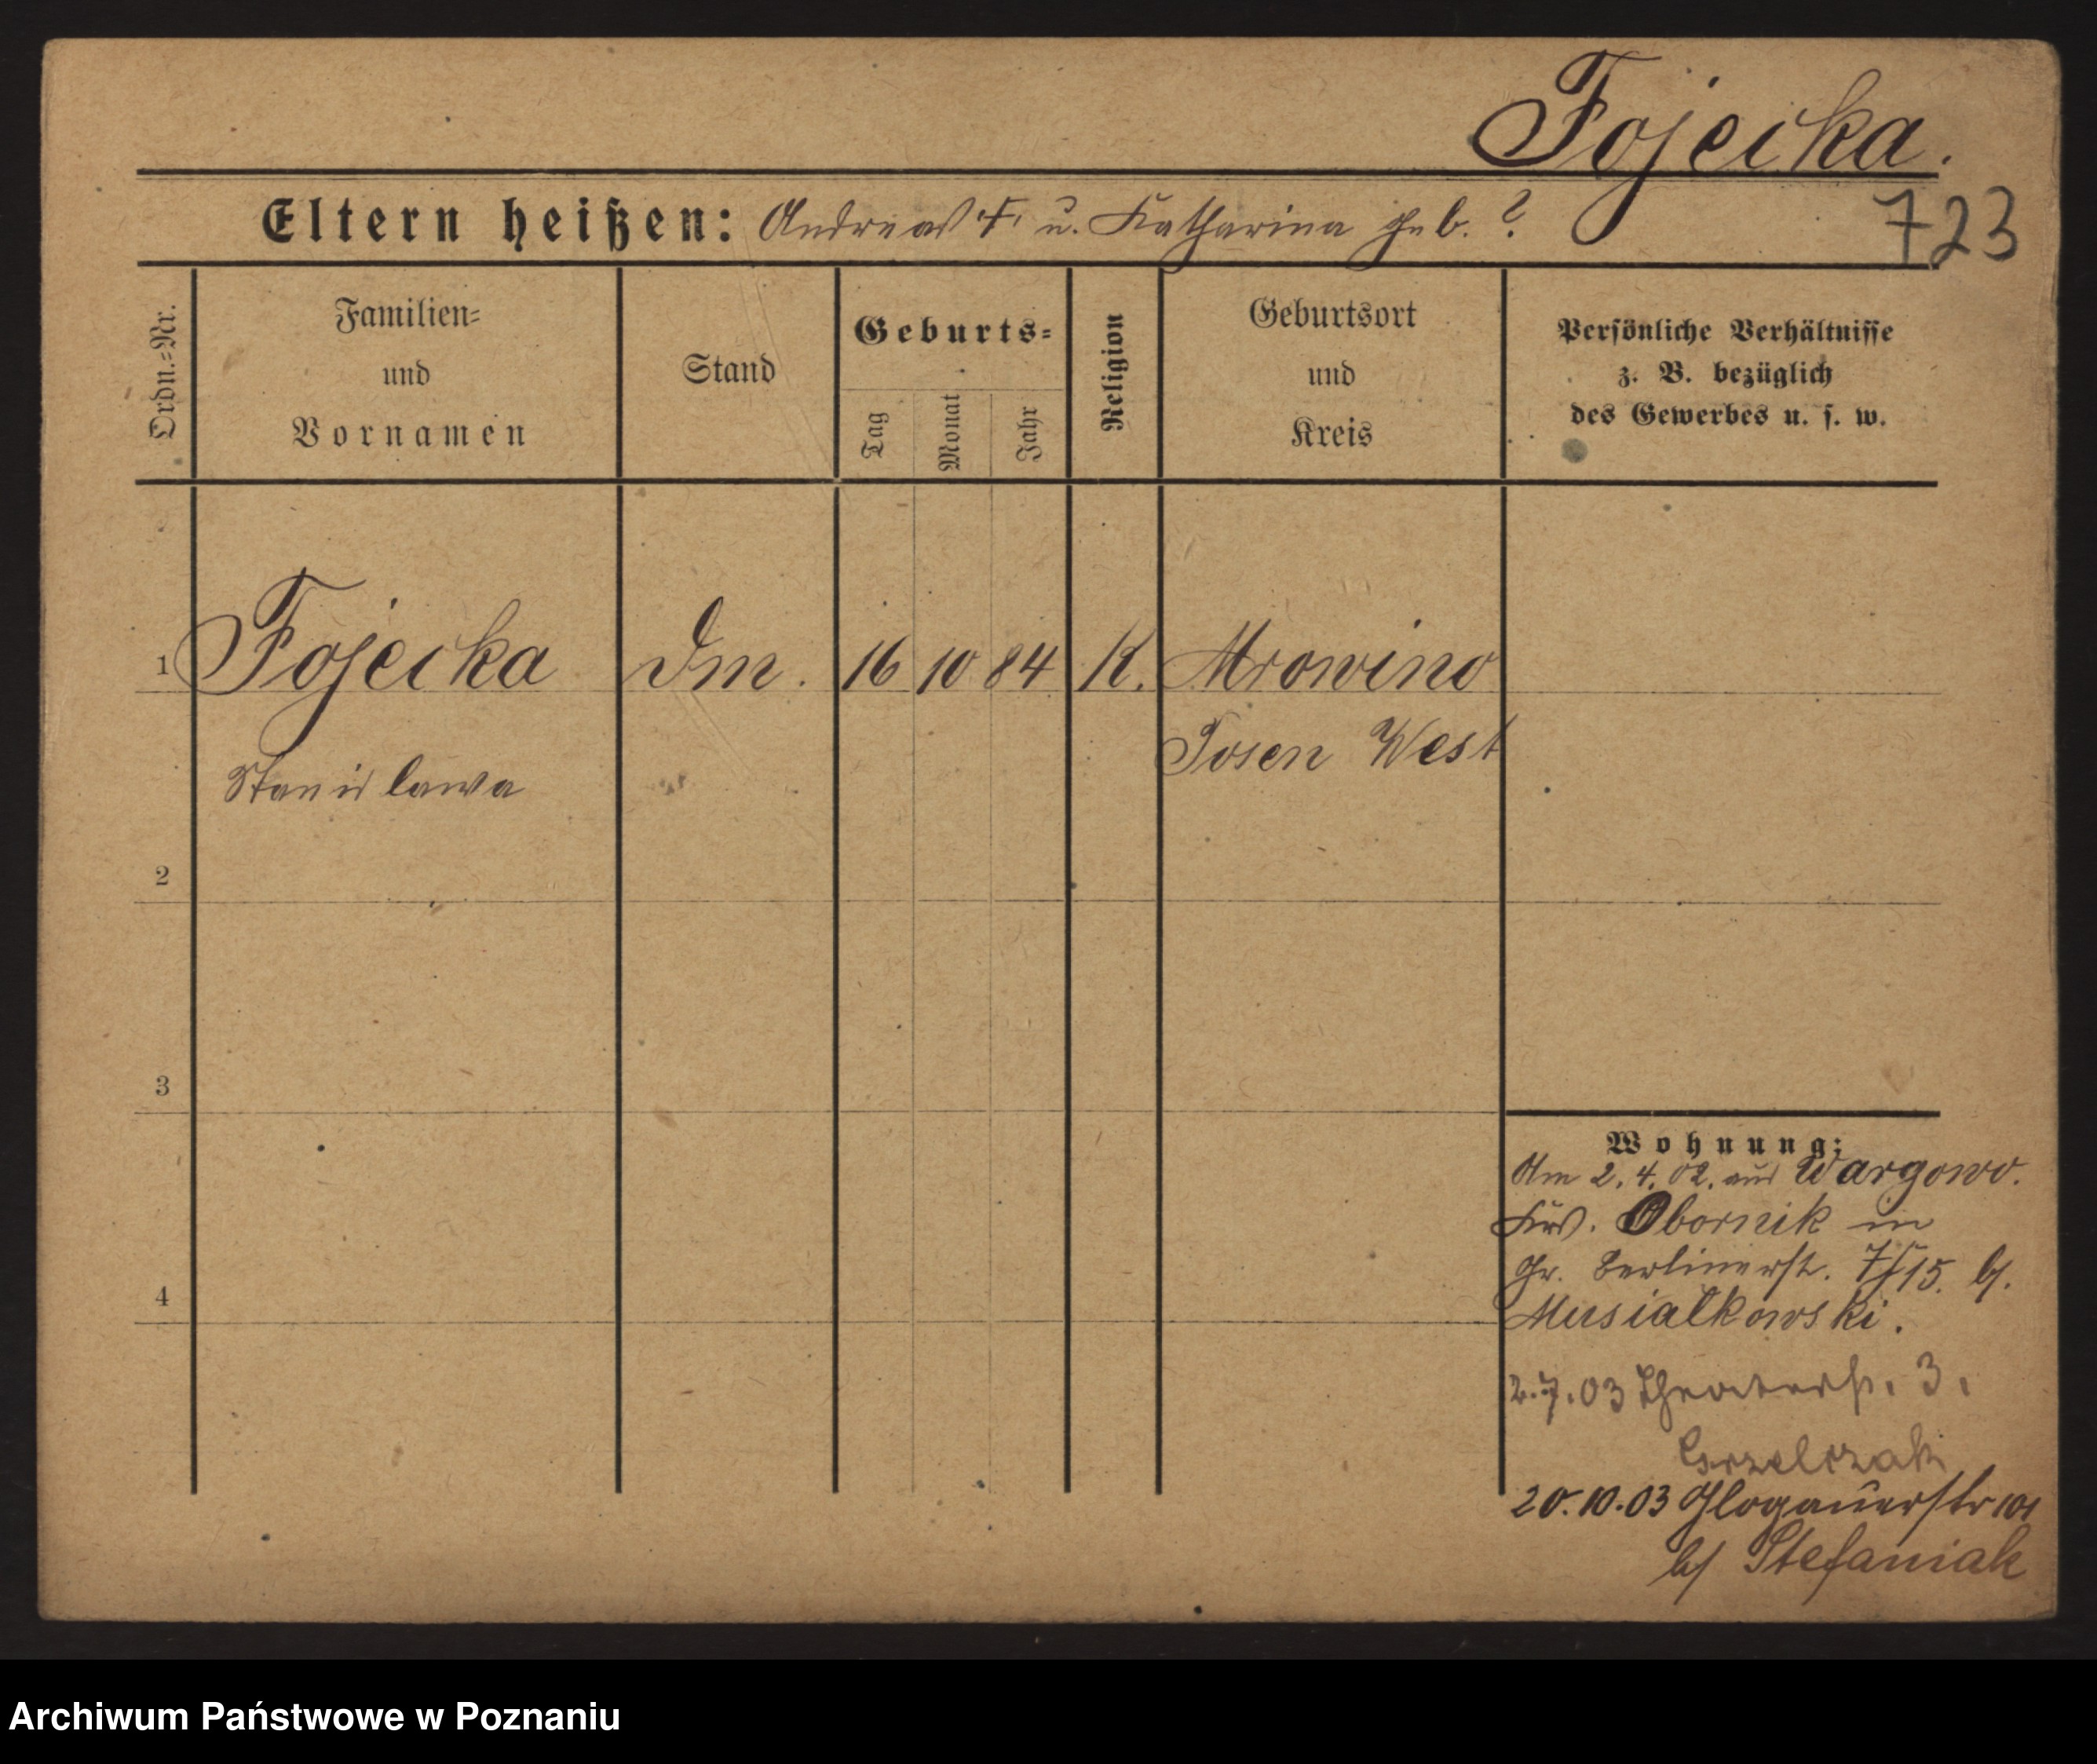 Fojecka.
Eltern heißen: Andreas F. u. Katharina geb. ?
723
Ordn.=Nr.
Familien=
und
Vornamen
Stand
Geburts=
Tag
Monat
Jahr
Religion
Geburtsort
und
Kreis
Persönliche Verhältnisse
z. B. bezüglich
des Gewerbes u. s. w.
1 Fojecka 16 10 84 K. Mrowino
Posen West
Stanislawa
2
3
4
Wohnung:
Am 2. 4. 02. aus Wargowo.
Krs. Obornik in
Gr. Berlinerstr. b/.
Musialkowski.
2.7.03 Theaterstr. 3.
Grzelczak
20.10.03 Glogauerstr 101
b/ Stefaniak
Archiwum Państwowe w Poznaniu